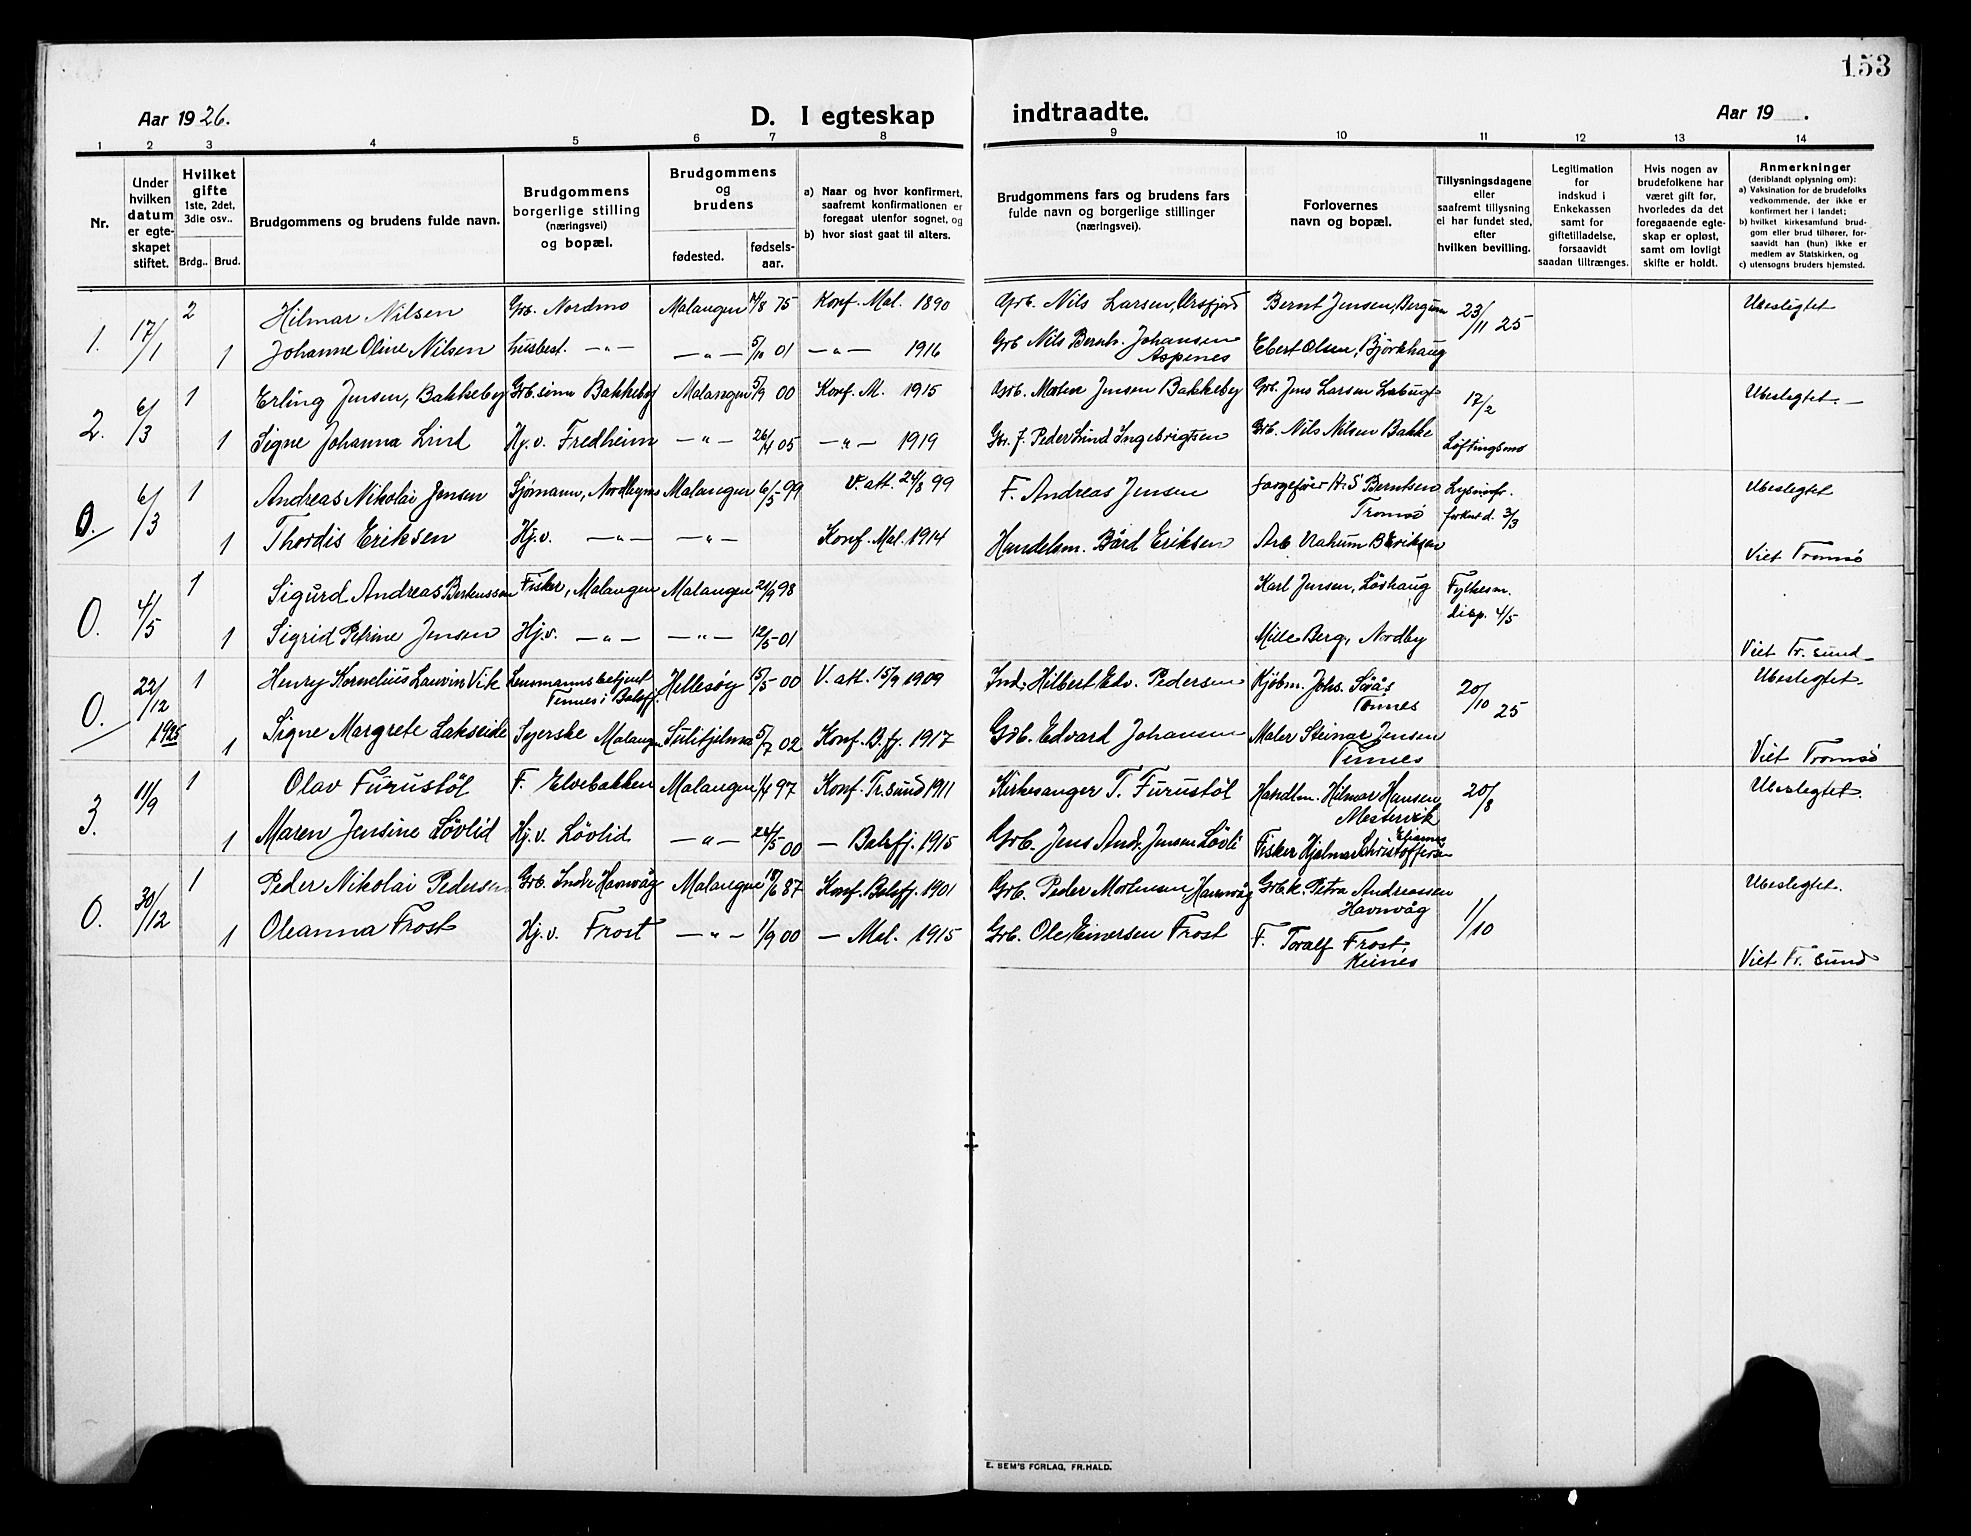 153
Aar 1926. D. I egteskap indtraadte. Aar 19 .
1 2 3 4 5 6 7 8 9 10 11 12 13 14
Nr.
Under hvilken datum er egteskapet stiftet.
Hvilket gifte 1ste, 2det, 3die osv..
Brdg.. Brud.
Brudgommens og brudens fulde navn.
Brudgommens borgerlige stilling (næringsvei) og bopæl.
Brudgommens og brudens
fødested. fødsels-aar.
a) Naar og hvor konfirmert, saafremt konfirmationen er foregaat utenfor sognet, og
b) hvor sidst gaat til alters.
Brudgommens fars og brudens fars fulde navn og borgerlige stillinger (næringsvei).
Forlovernes navn og bopæl.
Tillysningsdagene eller saafremt tillysning ei har fundet sted, efter hvilken bevilling.
Legitimation for indskud i Enkekassen samt for giftetilladelse, forsaavidt saadan tiltrænges.
Hvis nogen av brudefolkene har været gift før, hvorledes da det foregaaende egteskap er opløst, samt om lovligt skifte er holdt.
Anmerkninger (deriblandt oplysning om):
a) Vaksination for de brudefolks vedkommende, der ikke er konfirmert her i landet;
b) hvilket kirkesamfund brudgom eller brud tilhører, forsaavidt han (hun) ikke er medlem av Statskirken, og
c) utensogns bruders hjemsted.
1. 17/1 2 Hilmar Nilsen Grb. Nordmo Malangen 4/8 75 Konf. Mal. 1890 Grb. Nils Larsen, Bernt Jensen, Bergum 23/11 25 Ubeslegtet
1 Johanne Oline Nilsen Husbest. —"— —"— 5/10 01 —"— 1916 Grb Nils Bernh. Johansen Aspenes Ebert Olsen, Björkhaug
2. 6/3 1 Erling Jensen, Bakkeby Grb. sønn Bakkeby Malangen 5/9 00 Konf. M. 1915 Grb. Morten Jensen Bakkeby Grb. Jens Larsen 17/2 Ubeslegtet. —
1 Signe Johanna Lind Hj. v. Fredheim —"— 26/4 05 —"— 1919 Peder Lind Ingebrigtsen Grb. Nils Nilsen Bakke Løftingsmo
0. 6/3 1 Andreas Nikolai Jensen Sjømann, Nordbynes Malangen 6/5 99 V. att. 24/8 99 F. Andreas Jensen A. S Berntsen Tromsø Lysninfr. forknt d. 3/3 Ubeslegtet
1 Thordis Eriksen Hj. v. —"— —"— Konf. Mal. 1914 Handelsm. Bård Eriksen Arb Nahum B Eriksen Viet Tromsø
0. 4/5 1 Sigurd Andreas Bertenssen Fisker, Malangen Malangen 21/9 98 Karl Jensen, Løvhaug Fylkesm. disp. 4/5
1 Sigrid Petrine Jensen Hj. v. —"— —"— 12/5 01 Mille Berg, Nordby Viet Tr. sund
0. 22/12 1925 1 Henry Kornelius Lauvin Vik Lensmannsbetjent Tennes i Balsfj. Hillesøy 15/5 00 V. att. 15/9 1909 Ind. Hilbert Edv. Pedersen Kjøbm. Johs. Tennes 20/10 25 Ubeslegtet.
1 Signe Margrete Lakseide Syerske Malangen Sulitjelma 5/7 02 Konf. B.fj. 1917 Grb. Edvard Johansen Maler Steinar Jensen Tennes Viet Tromsø
3. 11/9 1 Olav Furustøl F. Elvebakken Malangen 1/4 97 Konf. Tr. sund 1911 Kirkesanger T. Furustøl Handlm. Hilmar Hansen Mestervik 20/8 Ubeslegtet.
1 Maren Jensine Løvlid Hj. v. Løvlid —"— 24/5 00 — Balsfj. 1915 Grb. Jens And. Jensen Løvli Fisker Hjalmar Christoffersen
0. 30/12 1 Peder Nikolai Pedersen Grb. Indre Havnvåg Malangen 18/6 87 Konf. Balsfj. 1901 Grb. Peder Mortensen Havnvåg Grbk. Petra Andreassen Havnvåg 1/10 Ubeslegtet.
1 Oleanna Frost Hj. v. Frost —"— 1/9 00 — Mal. 1915 Grb. Ole Einersen Frost F. Toralf Frost, Viet Tr. sund
E. SEM'S FORLAG, FR.HALD.